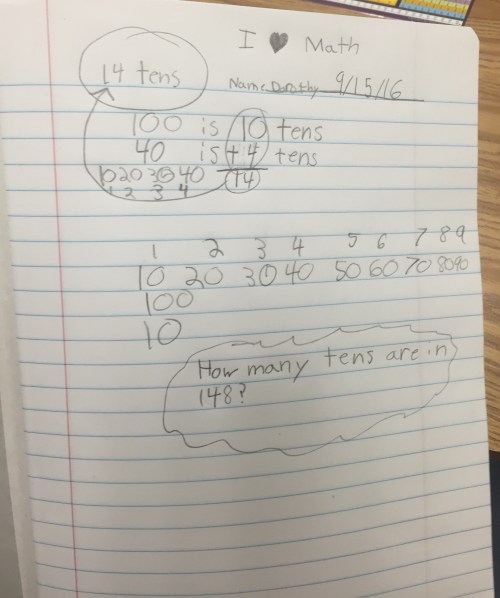 I ♥ Math
14 tens
Name Dorothy 9/15/16
100 is 10 tens
40 is +4 tens
10 20 30 40 14
1 2 3 4
1 2 3 4 5 6 7 8 9
10 20 30 40 50 60 70 80 90
100
10
How many tens are in
148?